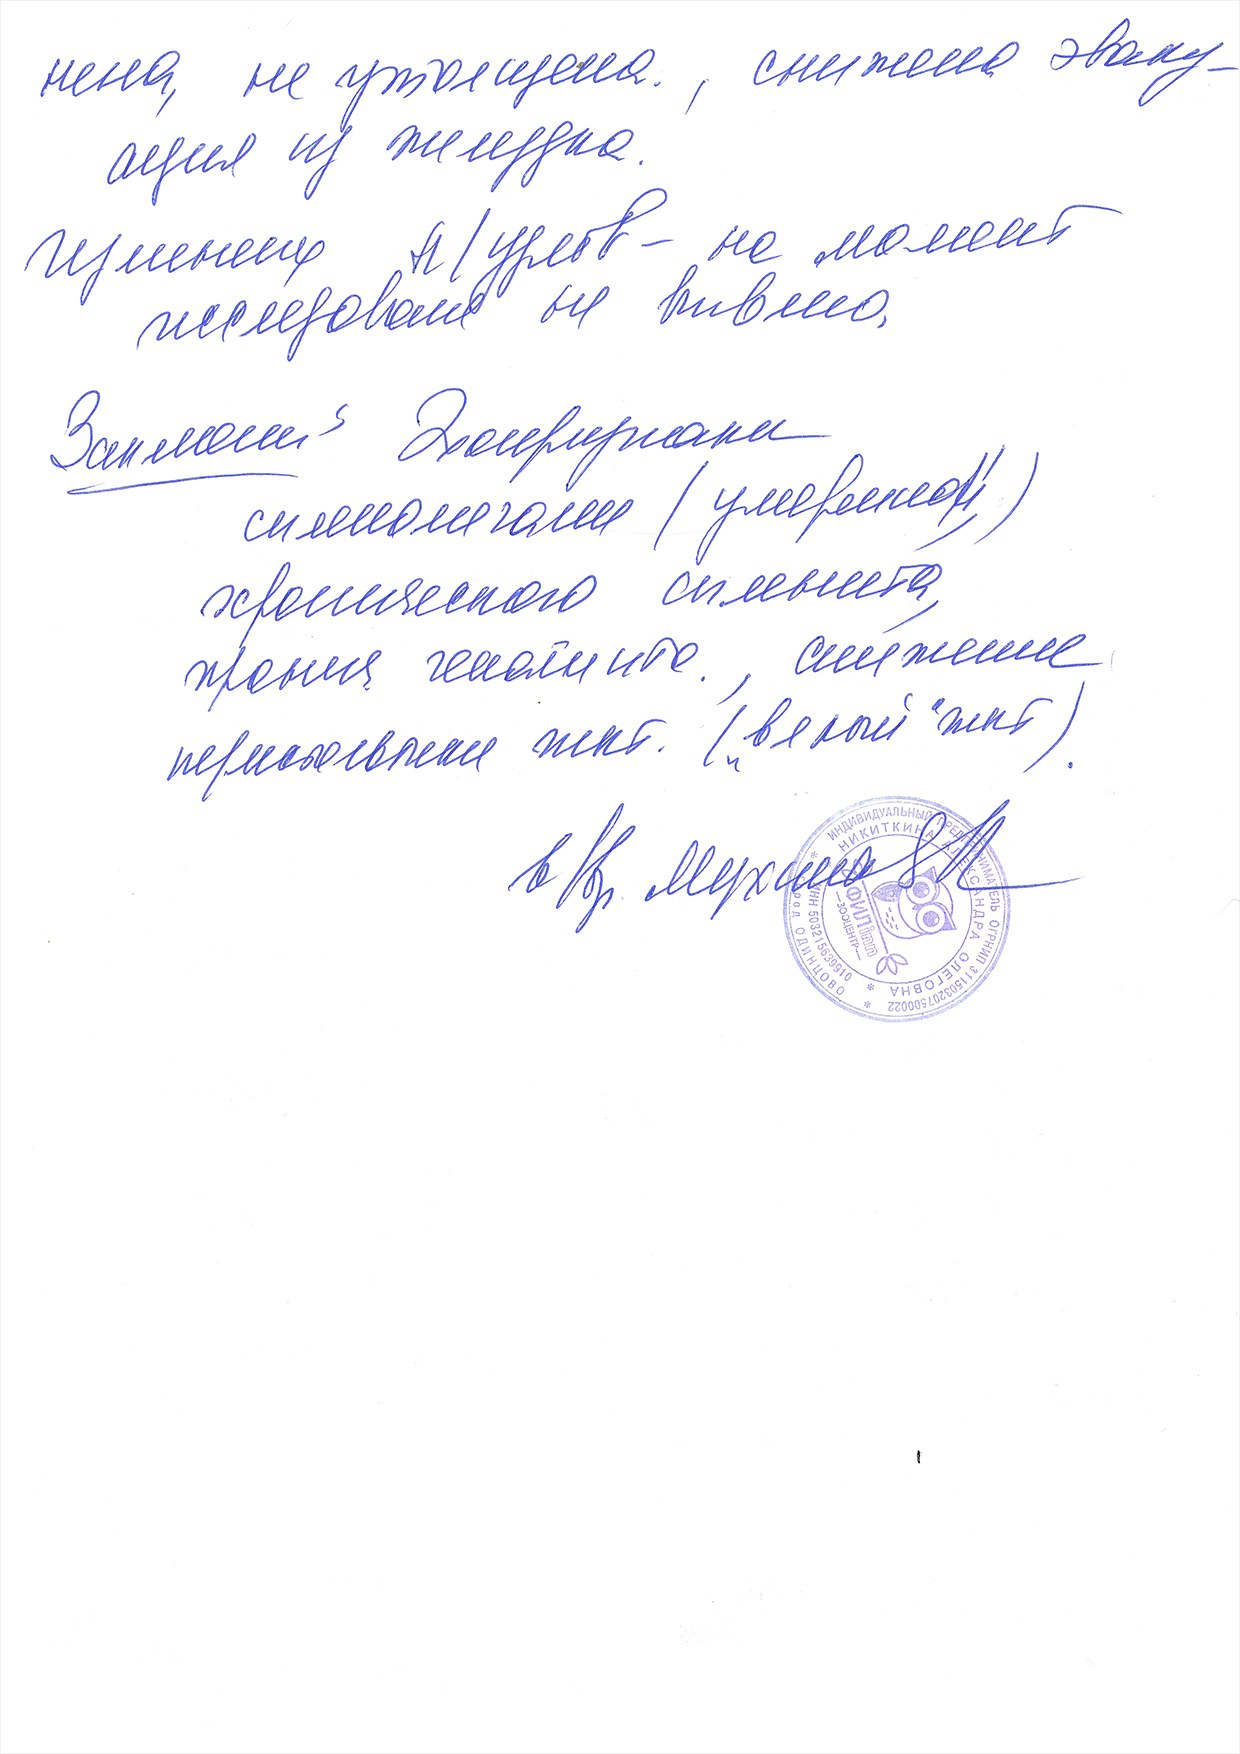 нена, не утолщена., снижена эваку-
ация из желудка.
Изменених л/узлов - на момент
исследован не выявлено.
Заключ: Эхопризнаки
спленомегалии (умеренной),
хронического спленита,
хронич. гепатита., снижение
перистальтики жкт. („вялый" жкт).
в/вр. Мухина
ИНДИВИДУАЛЬНЫЙ ПРЕДПРИНИМАТЕЛЬ ОГРНИП 311503207500022
* ГОРОД ОДИНЦОВО *
НИКИТКИНА АЛЕКСАНДРА ОЛЕГОВНА
* ИНН 503215639910 *
ФИЛinn
—ЗООЦЕНТР—